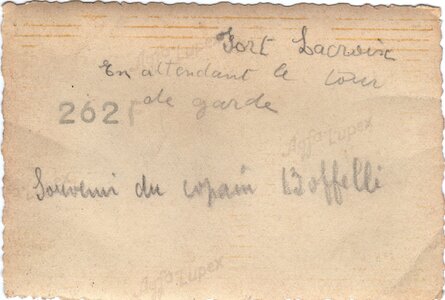 Fort Lacroix
En attendant le tour
de garde
262
Agfa Lupex
Souvenir du copain Boffelli
Agfa Lupex